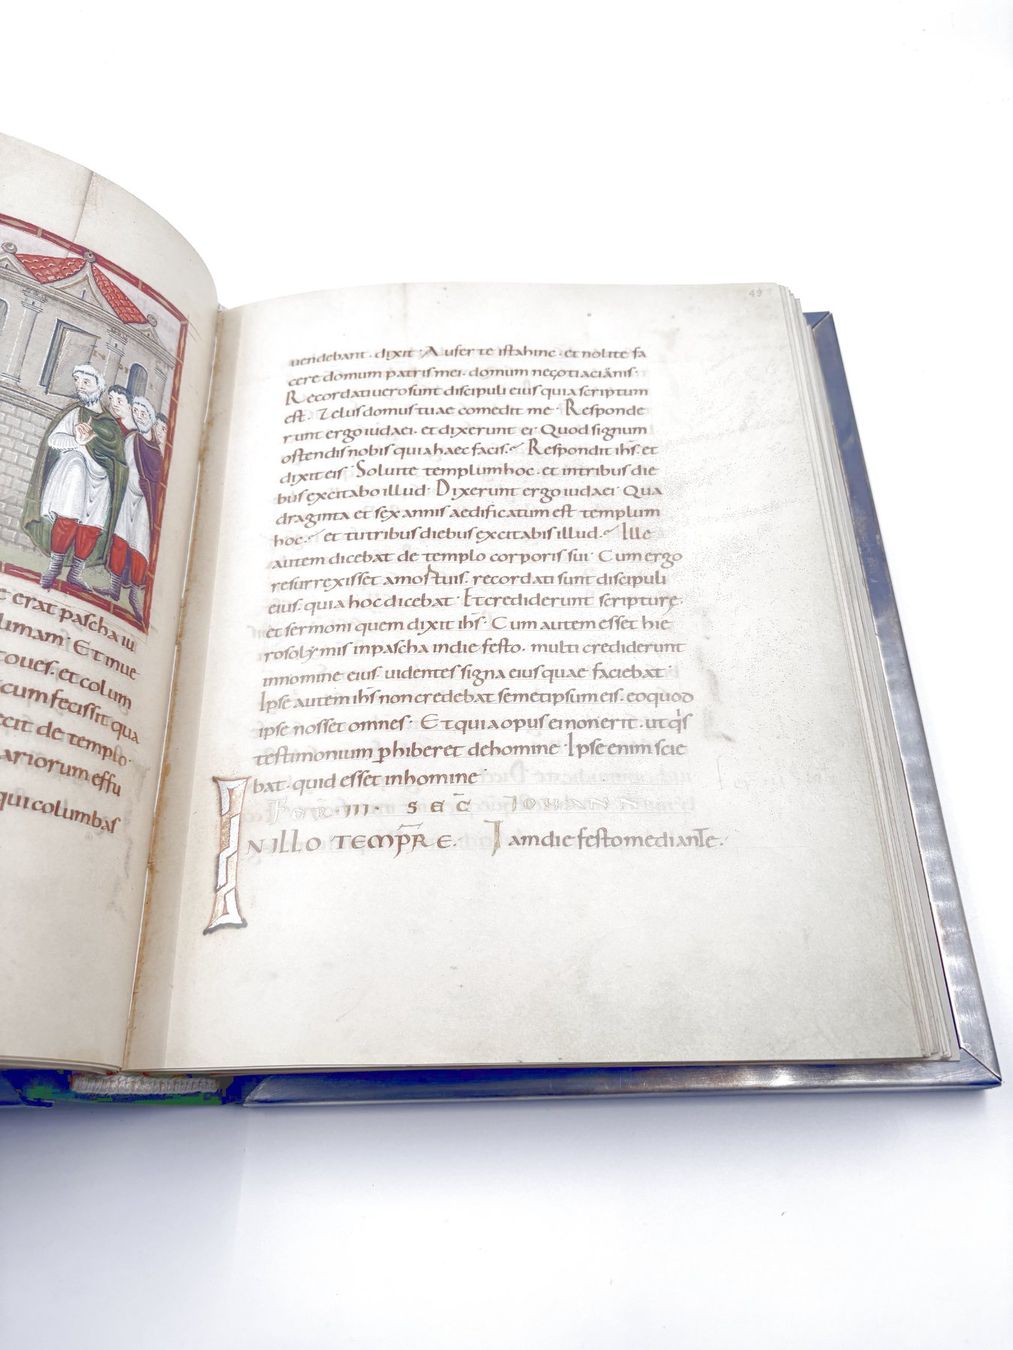 e erat pascha iu
limam· Et inue
t oues· et colum
cum fecisset qua
ecit de templo·
ariorum effu
qui columbas
49
uendebant· dixit· Auferte ista hinc· et nolite fa
cere domum patris mei· domum negotiacionis·
Recordati uero sunt discipuli eius quia scriptum
est· Zelus domus tuae comedit me· Responde
runt ergo iudaei· et dixerunt ei· Quod signum
ostendis nobis quia haec facis· Respondit ihs· et
dixit eis· Soluite templum hoc· et in tribus die
bus excitabo illud· Dixerunt ergo iudaei· Qua
draginta et sex annis aedificatum est templum
hoc· et tu tribus diebus excitabis illud· Ille
autem dicebat de templo corporis sui· Cum ergo
resurrexisset a mortuis· recordati sunt discipuli
eius· quia hoc dicebat· Et crediderunt scripturę·
et sermoni quem dixit ihs̄· Cum autem esset hie
rosolymis in pascha in die festo· multi crediderunt
in nomine eius· uidentes signa eius quae faciebat·
Ipse autem ihs̄ non credebat semetipsum eis· eo quod
ipse nosset omnes· Et quia opus ei non erit· ut qͥs
testimonium ꝑhiberet de homine· Ipse enim scie
bat· quid esset in homine·
Fer· III· SEC̄ IOHAN
IN ILLO TEMPR̄E· Iam die festo mediante·